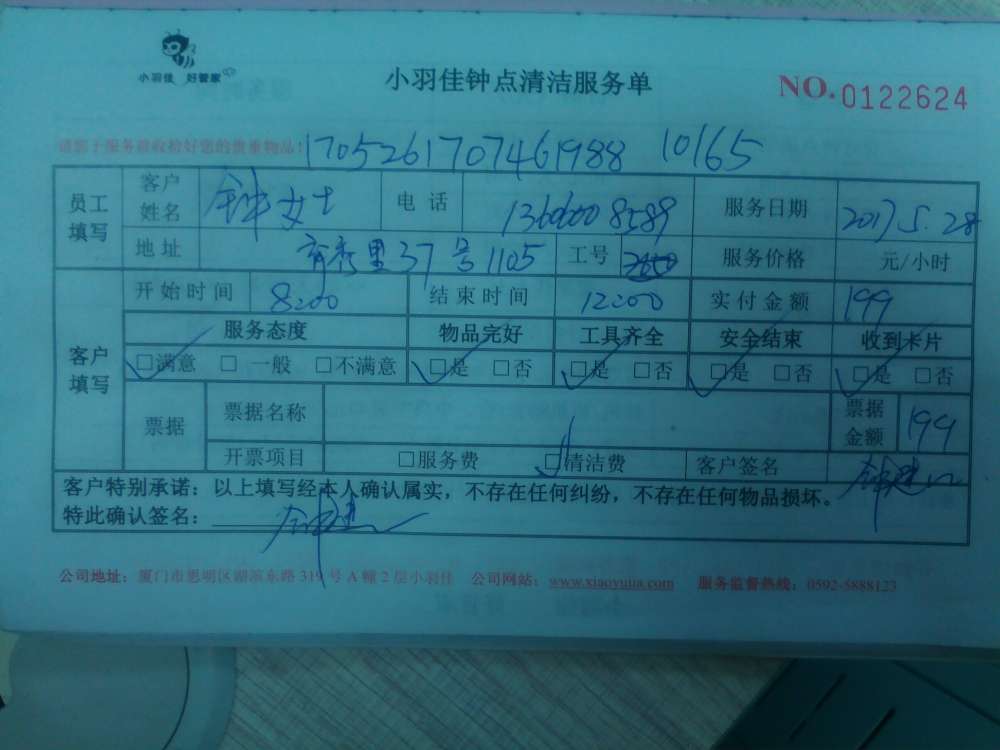 小羽佳 好管家
小羽佳钟点清洁服务单
NO.0122624
请您于服务前收拾好您的贵重物品!
1705261707461988 10165
员工填写 客户姓名 钟女士 电话 13606008589 服务日期 2017.5.28
地址 育秀里37号1105 工号 服务价格 元/小时
客户填写 开始时间 8:00 结束时间 12:00 实付金额 199
服务态度 物品完好 工具齐全 安全结束 收到卡片
□满意 □一般 □不满意 □是 □否 □是 □否 □是 □否 □是 □否
票据 票据名称 票据金额 199
开票项目 □服务费 □清洁费 客户签名
客户特别承诺：以上填写经本人确认属实，不存在任何纠纷，不存在任何物品损坏。
特此确认签名：
公司地址：厦门市思明区湖滨东路319号A幢2层小羽佳 公司网站：www.xiaoyujia.com 服务监督热线：0592-5888123